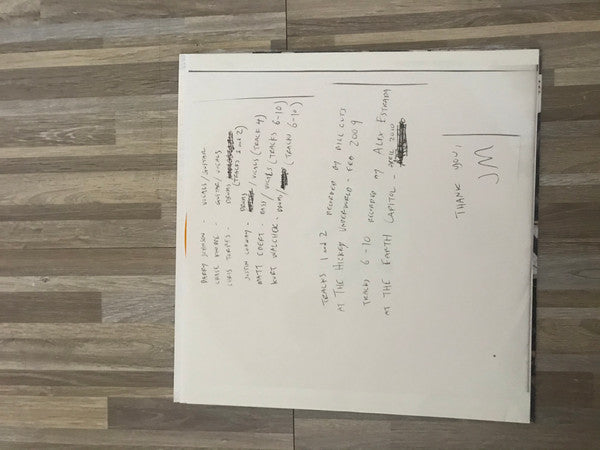 BARRY JOHNSON - VOCALS/GUITAR
CHASE KNOBBE - GUITAR/VOCALS
CHRIS - DRUMS
(TRACKS 1 and 2)
JUSTIN - DRUMS / VOCALS (TRACK 4)
MATT EBERT - BASS / VOCALS (TRACKS 6-10)
KURT WALCHER - DRUMS / (TRACKS 6-10)
TRACKS 1 and 2 RECORDED BY BILL
AT THE HICKEY UNDERWORLD - FEB 2009
TRACKS 6-10 RECORDED BY ALEX ESTRADA
AT THE EARTH CAPITOL - APRIL 2010
THANK YOU,
JM